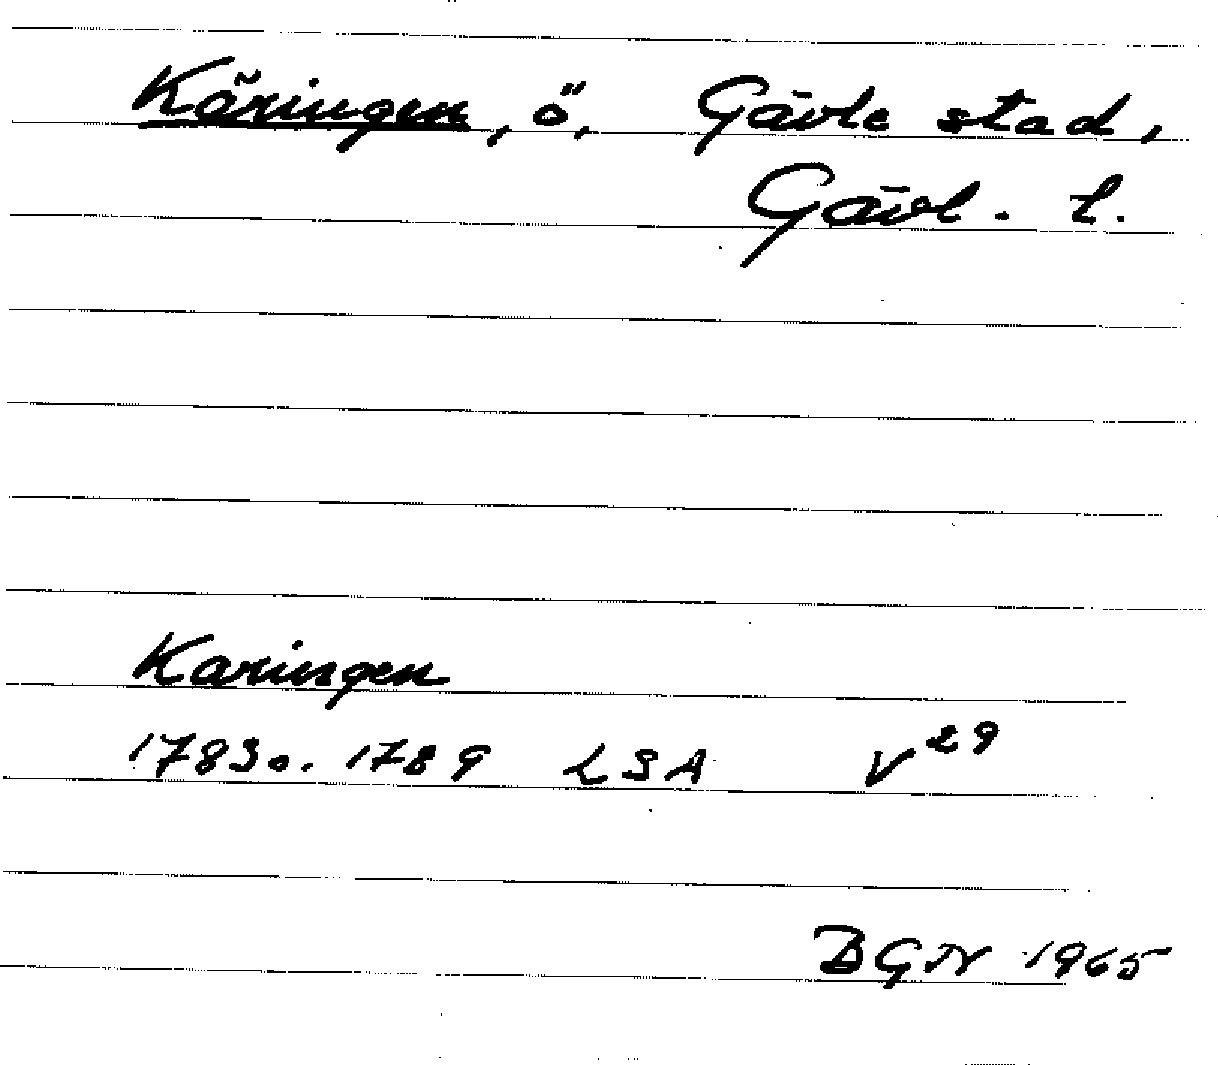 Käringen, ö, Gävle stad,
Gävl. l.
Karingen
1783 o. 1789 LSA V29
BGN 1965